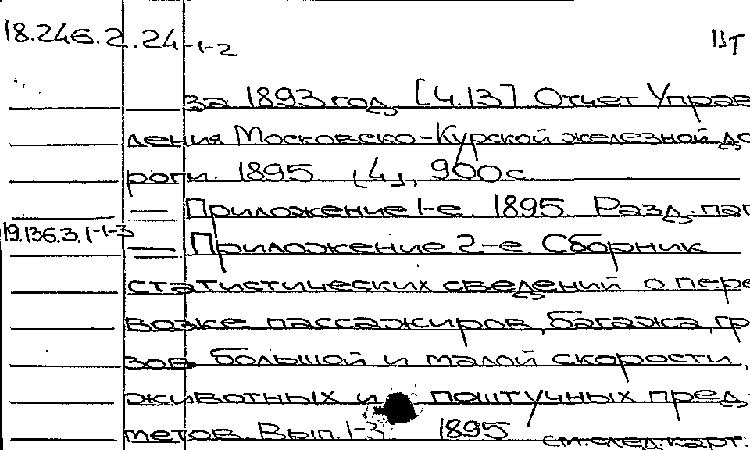 18.246.2.24-1-2 ЦТ
за 1893 год. [Ч.13] Отчет Управ
ления Московско-Курской железной до
роги. 1895 [4], 900 с.
— Приложение 1-е. 1895. Разд. паг
19.136.3.1-1-3 — Приложение 2-е. Сборник
статистических сведений о пере
возке пассажиров, багажа, гру
зов большой и малой скорости,
животных и поштучных пред
метов. Вып. 1-3. 1895 см. след. карт.